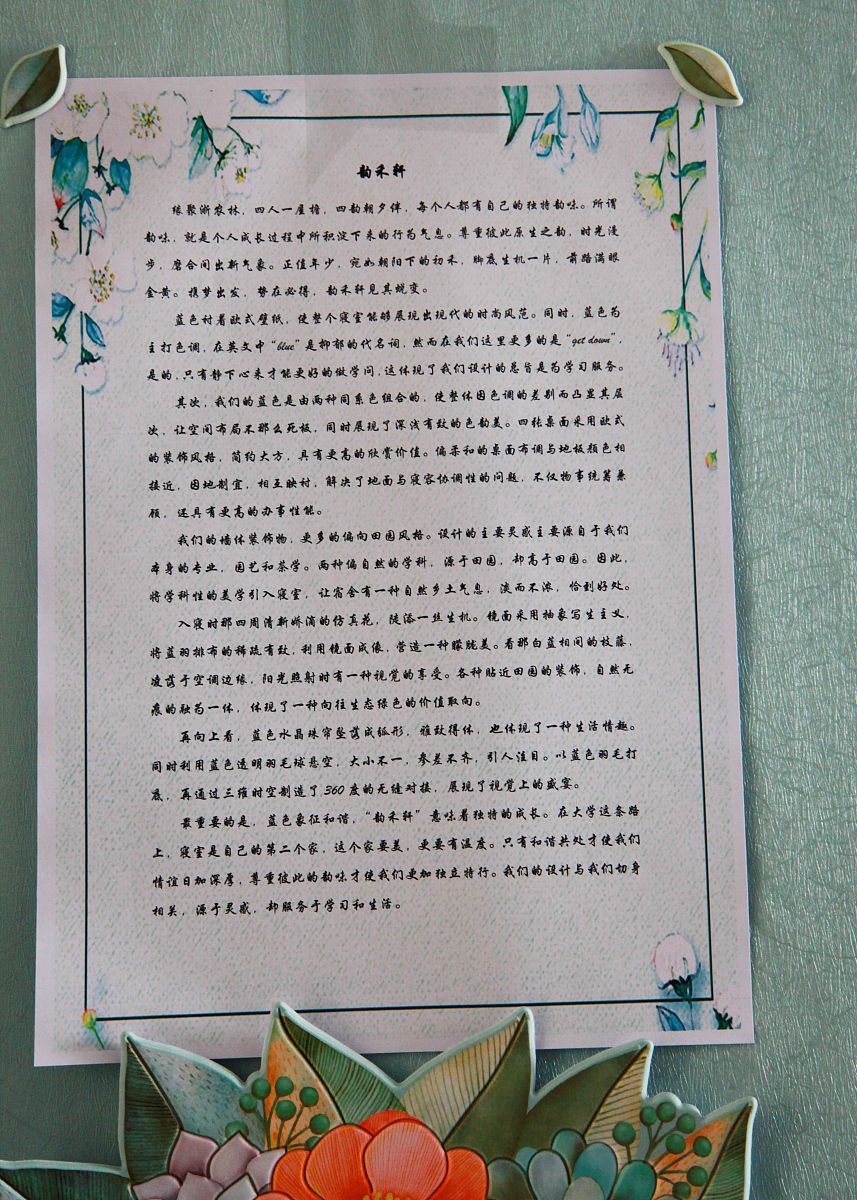 韵禾轩
缘聚浙农林，四人一屋檐，四韵朝夕伴，每个人都有自己的独特韵味。所谓
韵味，就是个人成长过程中所积淀下来的行为气息。尊重彼此原生之韵，时光漫
步，磨合间出新气象。正值年少，宛如朝阳下的初禾，脚底生机一片，前路满眼
金黄。携梦出发，势在必得，韵禾轩见其蜕变。
蓝色衬着欧式壁纸，使整个寝室能够展现出现代的时尚风范。同时，蓝色为
主打色调，在英文中“blue”是抑郁的代名词，然而在我们这里更多的是“get down”，
是的，只有静下心来才能更好的做学问，这体现了我们设计的总旨是为学习服务。
其次，我们的蓝色是由两种同系色组合的，使整体因色调的差别而凸显其层
次，让空间布局不那么死板，同时展现了深浅有致的色韵美。四张桌面采用欧式
的装饰风格，简约大方，具有更高的欣赏价值。偏柔和的桌面布调与地板颜色相
接近，因地制宜，相互映衬，解决了地面与寝容协调性的问题，不仅物事统筹兼
顾，还具有更高的办事性能。
我们的墙体装饰物，更多的偏向田园风格。设计的主要灵感主要源自于我们
本身的专业，园艺和茶学。两种偏自然的学科，源于田园，却高于田园。因此，
将学科性的美学引入寝室，让宿舍有一种自然乡土气息，淡而不浓，恰到好处。
入寝时那四周清新娇滴的仿真花，陡添一丝生机。镜面采用抽象写生主义，
将蓝羽排布的稀疏有致，利用镜面成像，营造一种朦胧美。看那白蓝相间的枝藤，
凌落于空调边缘，阳光照射时有一种视觉的享受。各种贴近田园的装饰，自然无
痕的融为一体，体现了一种向往生态绿色的价值取向。
再向上看，蓝色水晶珠帘坠落成弧形，雅致得体，也体现了一种生活情趣。
同时利用蓝色透明羽毛球悬空，大小不一，参差不齐，引人注目。以蓝色羽毛打
底，再通过三维时空制造了 360 度的无缝对接，展现了视觉上的盛宴。
最重要的是，蓝色象征和谐，“韵禾轩”意味着独特的成长。在大学这条路
上，寝室是自己的第二个家，这个家要美，更要有温度。只有和谐共处才使我们
情谊日加深厚，尊重彼此的韵味才使我们更加独立特行。我们的设计与我们切身
相关，源于灵感，却服务于学习和生活。